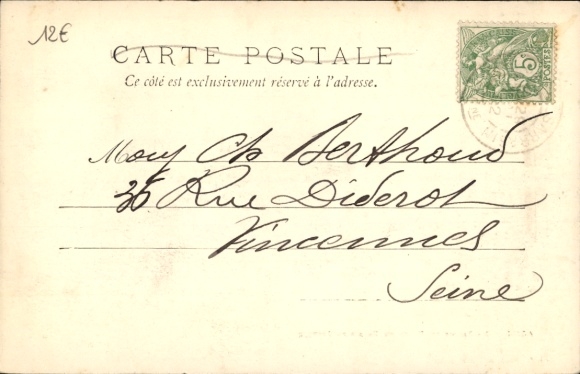 12€
CARTE POSTALE
Ce côté est exclusivement réservé à l'adresse.
5
POSTES
Mons Ch Berthoud
36 Rue Diderot
Vincennes
Seine